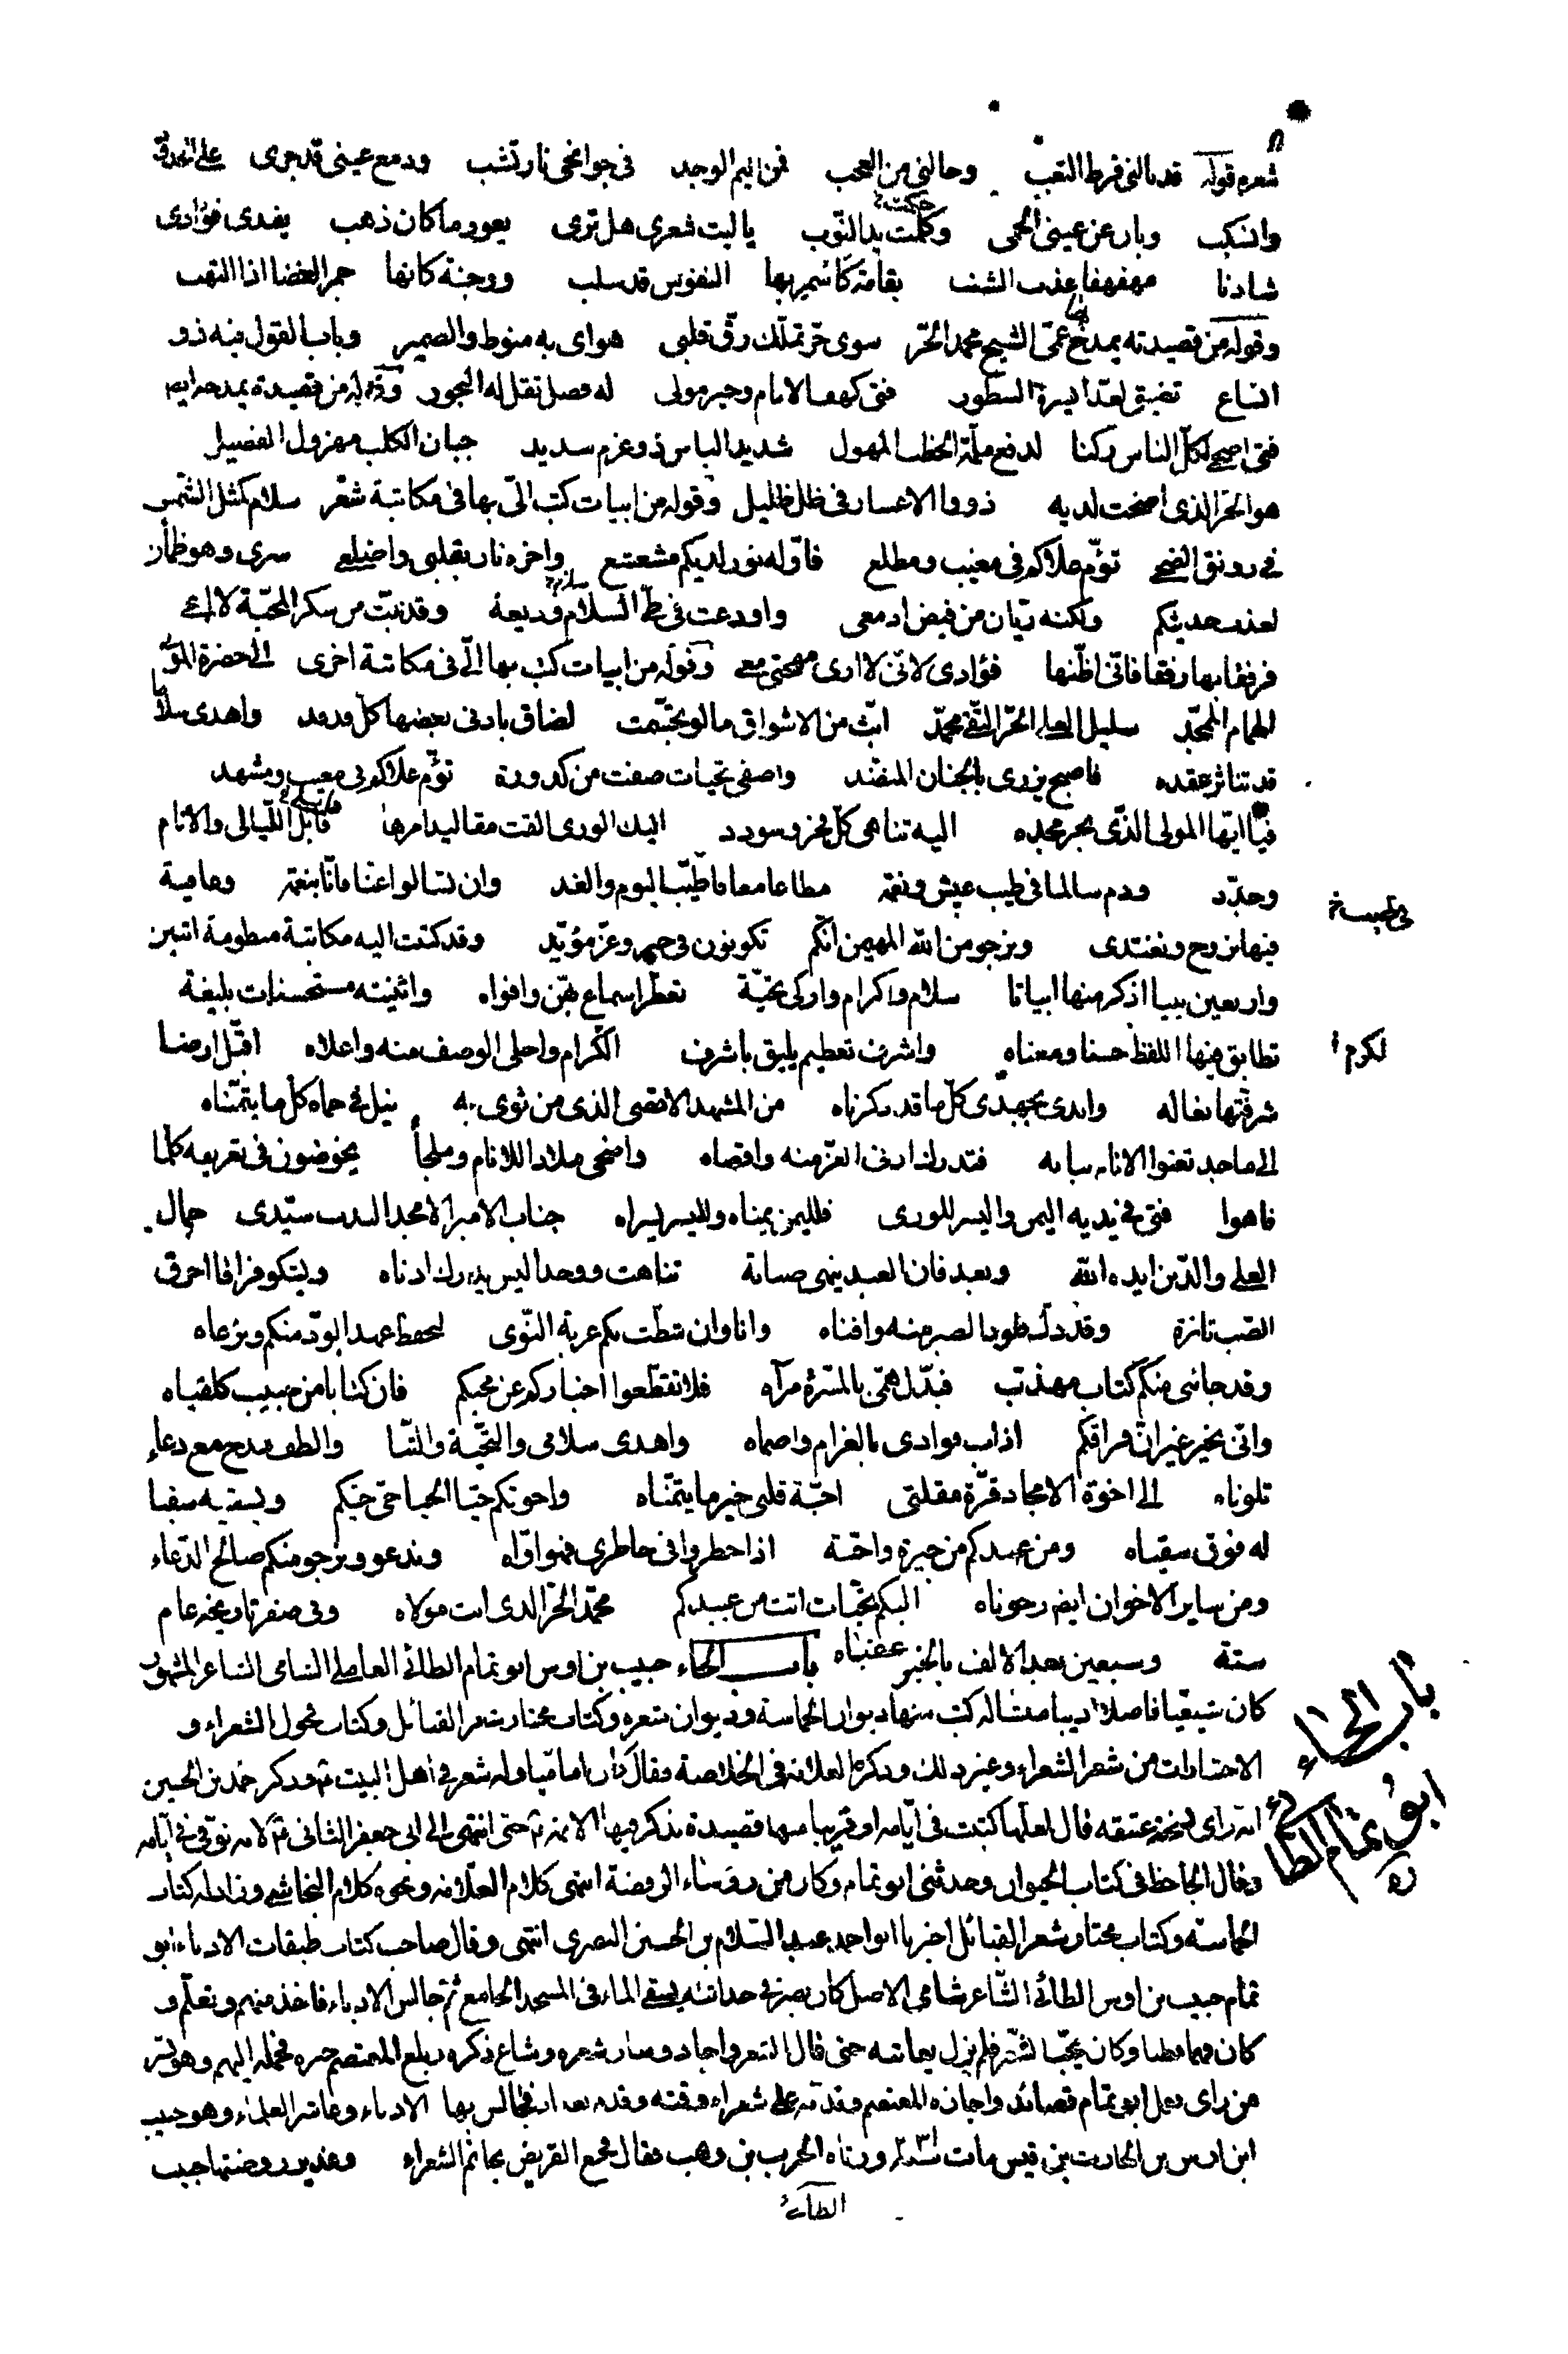 شعره قوله قد نالنى فرط التعب وحالنى من العجب فمن اليم الوجد فى جوانحى نار تشب ودمع عينى قد جرى على الخدّ
وانسكب وبان عن عينى الحمى وحكمت يد النّوب يا ليت شعرى هل ترى يعود ما كان ذهب يفدى فؤادى
شادنا مهفهفا عذب الشنب بقامة كأسمر بها النفوس قد سلب ووجنة كانها جمر الغضا اذا التهب
وقوله من قصيدته يمدح بها عمّى الشيخ محمد الحرّ سوى حرّ تملّك رقّ قلبى هواى به منوط والضمير وباب القول فيه ذو
اتساع تضيق لعدّ ايسره السطور فتى كهف الانام وخير مولى له فضل تقل له البحور وقوله من قصيدة يمدحه ايضا
فتى اضحى لكل الناس ركنا لدفع ملمّة الخطب المهول شديد الباس ذو عزم سديد جبان الكلب مهزول الفصيل
هو الحرّ الذى اضحت لديه ذووا الاعسار فى ظل ظليل وقوله من ابيات كتب الىّ بها فى مكاتبة شعر سلام كمثل الشمس
فى رونق الضحى تؤمّ علاكم فى مغيب ومطلع فاوّله نور لديكم مشعشع واخره نار بقلبى واضلعى سرى وهو ظمأن
لعذب حديثكم ولكنه ريّان من فيض ادمعى واودعت فى طىّ السلام وديعة وقد نبت من سكر المحبّة لا اعى
فرفقا بها رفقا فانّى اظنّها فؤادى لانّى لا ارى مهجتى معى وقوله من ابيات كتب بها الىّ فى مكاتبة اخرى الى حضرة المولى
الهمام الممجّد سليل العلى الحرّ التقى محمّد ابثّ من الاشواق ما لو تجسّمت لضاق بادنى بعضها كلّ فدفد واهدى سلاما
قد تناثر عقده فاصبح يزرى بالجنان المنضّد واصفى تحيّات صفت من كدورة تؤمّ علاكم فى مغيب ومشهد
فيا ايّها المولى الذى بحر مجده اليه تناهى كل فخر وسودد اليك الورى القت مقاليد امرها فابل الليالى والانام
وجدّد ودم سالما فى طيب عيش ونعمة مطاعا معافا طيّب اليوم والغد وان تسالوا عنّا فانّا بنعمة وعافية
فى طيب خ
فيها نروح ونغتدى ونرجو من الله المهيمن انّكم تكونون فى خير وعزّ مؤيّد وقد كتبت اليه مكاتبة منظومة اثنين
واربعين بيتا اذكر منها ابياتا سلام واكرام وازكى تحيّة تعطّر اسماع بهنّ وافواه واثنية مستحسنات بليغة
تطابق فيها اللفظ حسنا ومعناه واشرف تعظيم يليق باشرف الكرام واحلى الوصف منه واعلاه اقبّل ارضا
لكرم
شرفّتها نعاله وابدى بجهدى كلّ ما قد ذكرناه من المشهد الاقصى الذى من ثوى به ينل فى حماه كلّ ما يتمنّاه
الى ماجد تعنوا الانام ببابه فتدرك ادنى العزّ منه واقصاه واضحى ملاذا للانام وملجأ يخوضون فى تعريفه كلّما
فاهوا فتى فى يديه اليمن واليسر للورى فلليمن يمناه ولليسر يسراه جناب الامير الامجد الندب سيّدى جمال
العلى والدّين ايده الله وبعد فان العبد ينهى صبابة تناهت ووجدا ليس يدرك ادناه ويشكو فراقا احرق
القلب ناره وقد دكّ طود الصبر منه وافناه وانا وان شطّت بكم غربة النّوى لنحفظ عهد الودّ منكم ونرعاه
وقد جائنى منكم كتاب مهذّب فبدّل همّى بالمسّرة مرآه فلا تقطعوا اخباركم عن محبكم فان كتابا من حبيب كلقياه
وانّى بخير غير انّ فراقكم اذاب فوادى بالغرام واصماه واهدى سلامى والتحيّة والثنا والطف مدح مع دعاء
تلوناه الى اخوة الامجاد قرّة مقلتى احبّة قلبى خير ما يتمنّاه واخوتكم حيّا الحيا حىّ حيّكم ويسقيه سقيا
له فوق سقياه ومن عندكم من جيرة واحبّة اذا خطروا فى خاطرى فهم اوّاه وندعو ونرجو منكم صالح الدّعاء
ومن ساير الاخوان ايضا رجوناه اليكم تحيّات اتت من عبيدكم محمّد الحرّ الذى انت مولاه وفى صفر تاريخه عام
ستة وسبعين بعد الالف بالخير عقبناه باب الحاء حبيب بن اوس ابو تمام الطائى العاملى الشامى الشاعر المشهور
باب الحاء
كان شيعيا فاضلا اديبا منشئا له كتب منها ديوان الحماسة وديوان شعره وكتاب مختار شعر القبائل وكتاب فحول الشعراء و
الاختيارات من شعر الشعراء وغير ذلك وذكره العلامة فى الخلاصة فقال كان اماميّا وله شعر فى اهل البيت ع وذكر احمد بن الحسين
ابو تمام الطائى ره
انه راى نسخة عتيقة قال لعلّها كتبت فى ايّامه او قريبا منها قصيدة يذكر فيها الائمة ع حتى انتهى الى ابى جعفر الثانى ع لانه توفى فى ايّامه
وقال الجاحظ فى كتاب الحيوان وحدثنى ابو تمام وكان من رؤساء الرافضة انتهى كلام العلامة ونحوه كلام النجاشى وزاد له كتاب
الحماسه وكتاب مختار شعر القبائل اخبرنا ابو احمد عبد السّلام بن الحسين البصرى انتهى وقال صاحب كتاب طبقات الادباء ابو
تمام حبيب بن اوس الطائى الشّاعر شامى الاصل كان بمصر فى حداثته يسقى الماء فى المسجد الجامع ثم جالس الادباء فاخذ منهم وتعلّم و
كان فهما فطنا وكان يحبّ الشعر فلم يزل يعانيه حتى قال الشعر واجاد وسار شعره وشاع ذكره وبلغ المعتصم خبره فحمله اليهم وهو بسرّ
من راى فعمل ابو تمام قصائد واجازه المعتصم وقدّمه على شعراء وقته وقدم بغداد فجالس بها الادباء وعاشر العلماء وهو حبيب
ابن اوس بن الحارث بن قيس مات سنة ٢٣١ ورثاه الحسن بن وهب فقال فجع القريض بخاتم الشعراء وغدير روضتها حبيب
الطائى